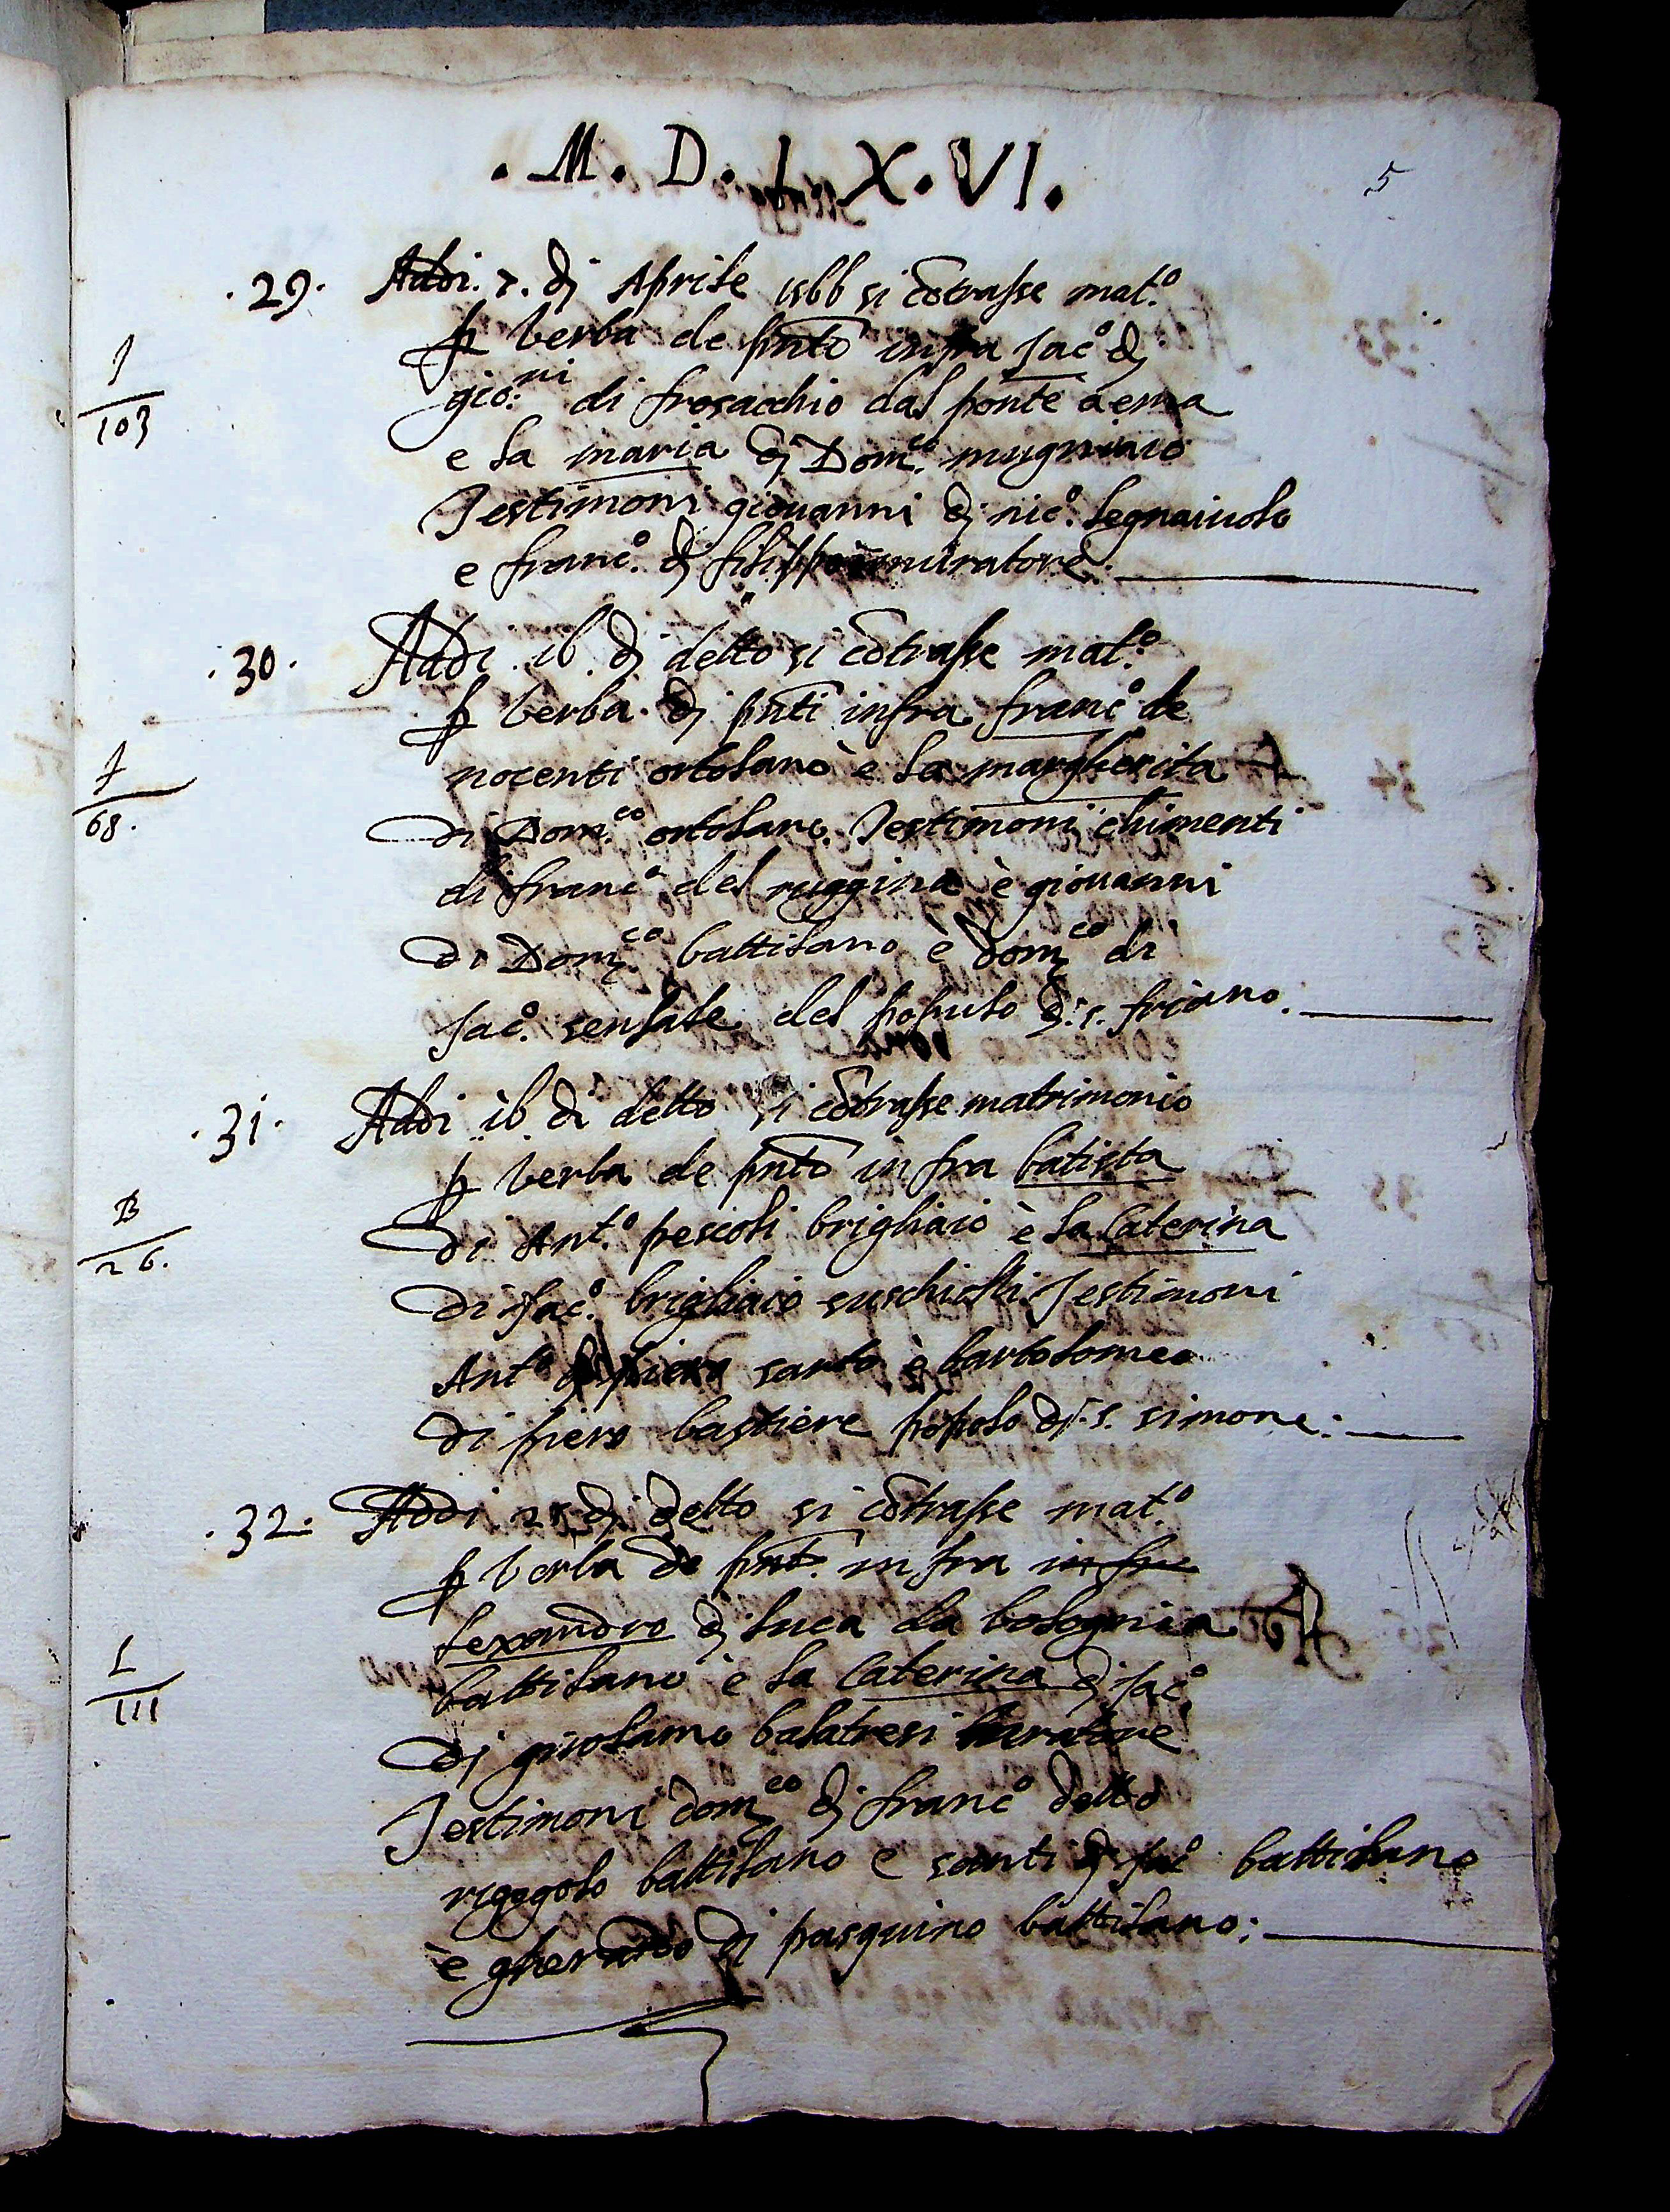 .M.D.L.X.VI.
5
.29. Addi. 7. di Aprile 1566 si cōtrasse mat.º
p verba de pñto infra Jacº di
J
103
gio:ni di frosacchio dal ponte a ema
e la maria di Dom.co mugniaio
Testimoni giouanni di nicº. legnaiuolo
e francº. di filippo muratore.
.30. Addi .16. di detto si cōtrasse mat.º
p verba. di pñti infra francº de
nocenti ortolano è la margherita
f
68.
di Dom.co ortolano. Testimoni chimenti
di francº del ruggina è giouanni
di Dom.co battilano è dom.co di
Jacº. sensale del populo di .s. friano.
.31. Addi 16 di detto si cōtrasse matrimonio
p verba de pñto in fra batista
B
26.
di Ant.º pescoli brigliaio è la Caterina
di Jacº. brigliaio Testimoni
Antº di piero sarto è bartolomeo
di piero bastiere popolo di .s. simone.
.32. Addi 25 di detto si cōtrasse mat.º
p verba de pñt. in fra in fra
lexandro di luca da bolognia
L
111
battilano è la Caterina di Jacº
di girolamo balatresi muratore
Testimoni dom.co di francº detto
rigogolo battilano e santi di Jacº battilano
è gherardo di pasquino battilano: